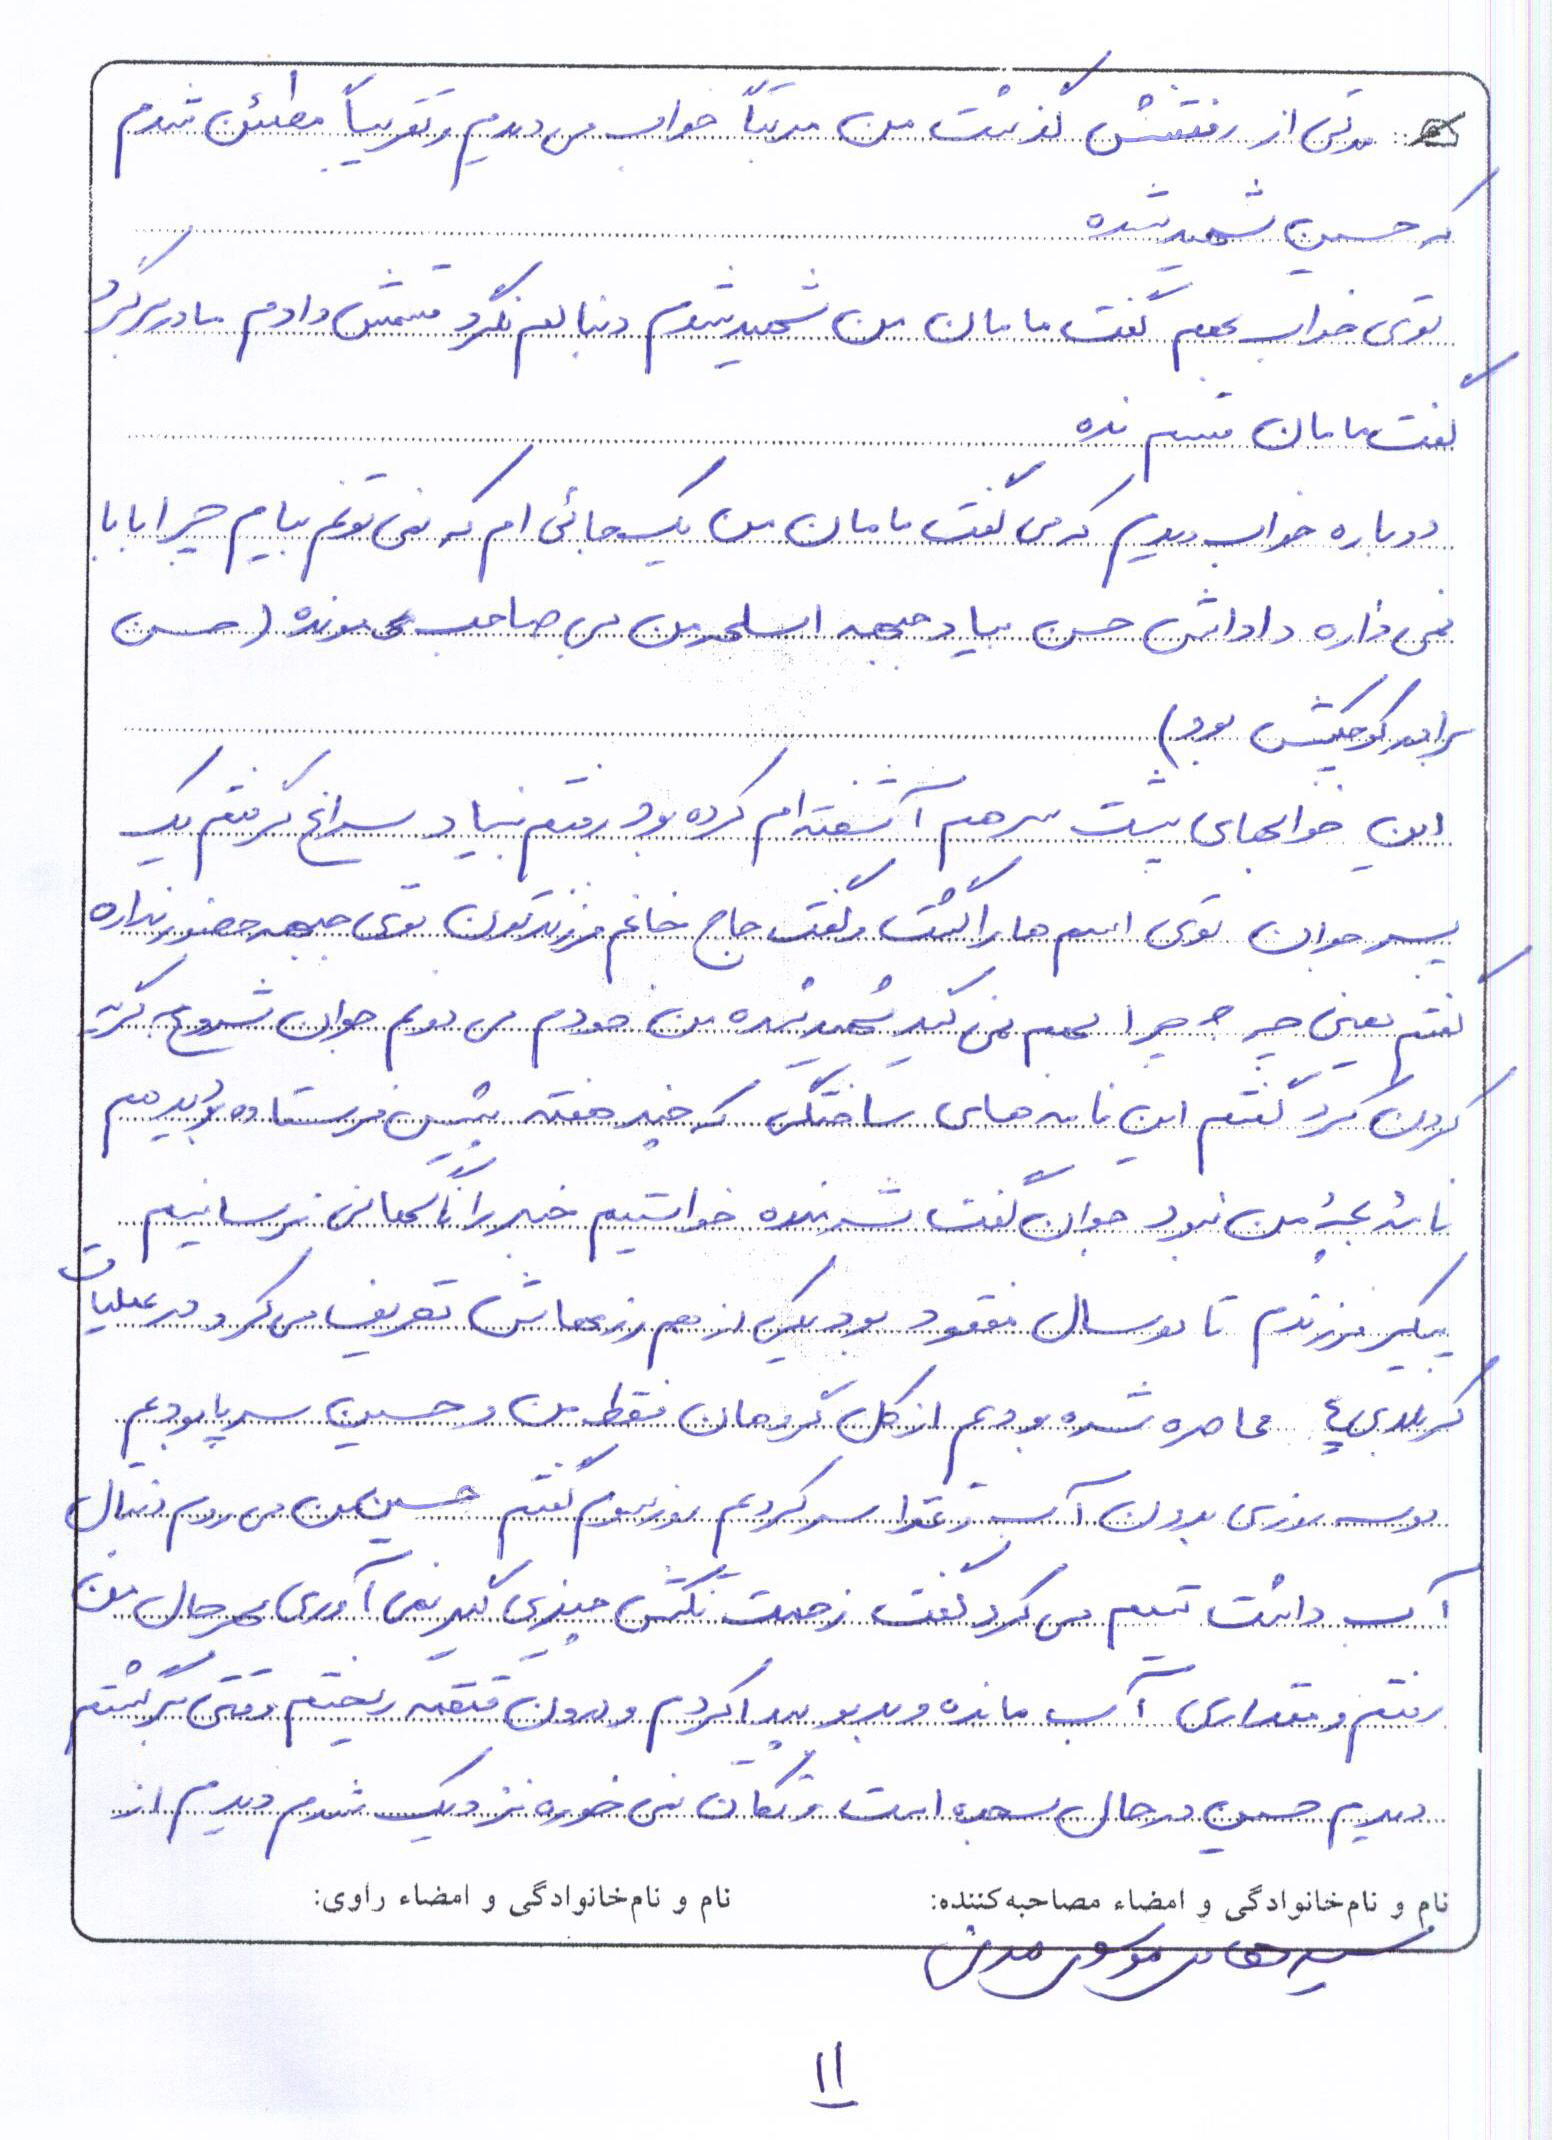 مدتی از رفتنش گذشت من مرتباً خواب می دیدم و تقریباً مطمئن شدم
که حسین شهید شده
توی خواب بهم گفت مامان من شهید شدم دنبالم نگرد قسمش دادم مادر برگرد
گفت مامان قسم نده
دوباره خواب دیدم که می گفت مامان من یک جائی ام که نمی تونم بیام چرا بابا
نمی ذاره داداش حسن بیاد جبهه اسلحه من بی صاحب مونده (حسن
برادر کوچکش بود)
این خوابهای پشت سر هم آشفته ام کرده بود رفتم بنیاد سراغ گرفتم یک
پسر جوان توی اسم ها را گشت و گفت حاج خانم فرزندتون توی جبهه حضور نداره
گفتم یعنی چی چرا بهم نمی گید شهید شده من خودم می دونم جوان شروع به گریه
کردن کرد گفتم این نامه های ساختگی که چند هفته پیش فرستاده بودید هم
نامهٔ بچهٔ من نبود جوان گفت شرمنده خواستیم خبر را ناگهانی نرسانیم
پیکر فرزندم تا دو سال مفقود بود یکی از هم رزمهاش تعریف می کرد در عملیات
کربلای ۴ محاصره شده بودیم از کل گروهان فقط من و حسین سرپا بودیم
دو سه روزی بدون آب و غذا سر کردیم روز سوم گفتم حسین من می روم دنبال
آب داشت تیمم می کرد گفت زحمت نکش چیزی گیر نمی آوری بهر حال من
رفتم و مقداری آب مانده و بدبو پیدا کردم و درون قمقمه ریختم وقتی برگشتم
دیدم حسین در حال سجده است و تکان نمی خوره نزدیک شدم دیدم از
نام و نام‌خانوادگی و امضاء مصاحبه‌کننده: نام و نام‌خانوادگی و امضاء راوی:
موسوی مدنی
۱۱